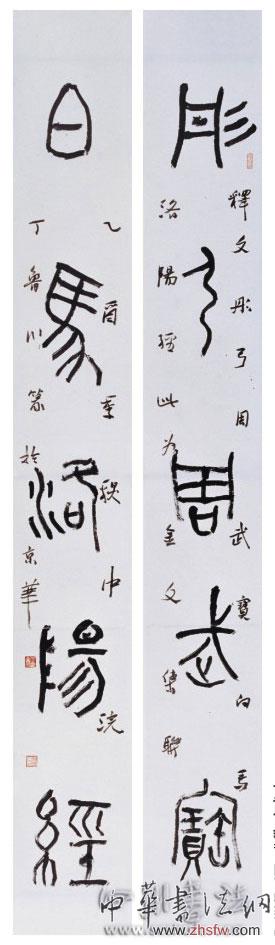 彤弓周武寶
釋文彤弓周武寶白馬
洛陽經此為金文集聯
白馬洛陽經
乙酉孟秋中浣
丁魯川篆於京華
中華書法網
www.zhsfw.com